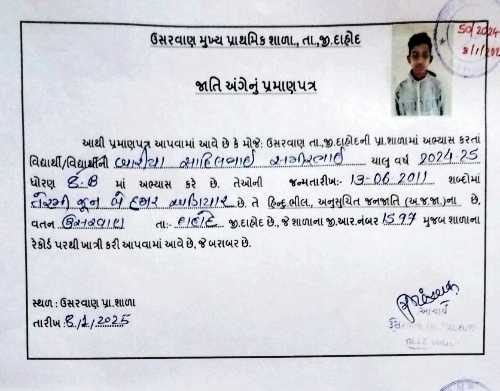 ઉસરવાણ મુખ્ય પ્રાથમિક શાળા., તા.,જી.દાહોદ
50/2024
8/1/202
જાતિ અંગેનું પ્રમાણપત્ર
આથી પ્રમાણપત્ર આપવામાં આવે છે કે મોજે: ઉસરવાણ તા.,જી.દાહોદની પ્રા.શાળામાં અભ્યાસ કરતાં
વિદ્યાર્થી/વિદ્યાર્થીની બારીયા સાહિલભાઇ સમીરભાઇ ચાલુ વર્ષ 2024-25
ધોરણ 8-B માં અભ્યાસ કરે છે. તેઓની જન્મતારીખ:- 13-06-2011 શબ્દોમાં
તેરમી જૂન બે હજાર અગિયાર છે. તે હિન્દુ ભીલ, અનુસુચિત જનજાતિ (અ.જ.જા.)ના છે,
વતન ઉસરવાણ તા:- દાહોદ જી.દાહોદ છે., જે શાળાના જી.આર.નંબર 1597 મુજબ શાળાના
રેકોર્ડ પરથી ખાત્રી કરી આપવામાં આવે છે, જે બરાબર છે.
સ્થળ : ઉસરવાણ પ્રા.શાળા
તારીખ: 8/1/2025
આચાર્ય